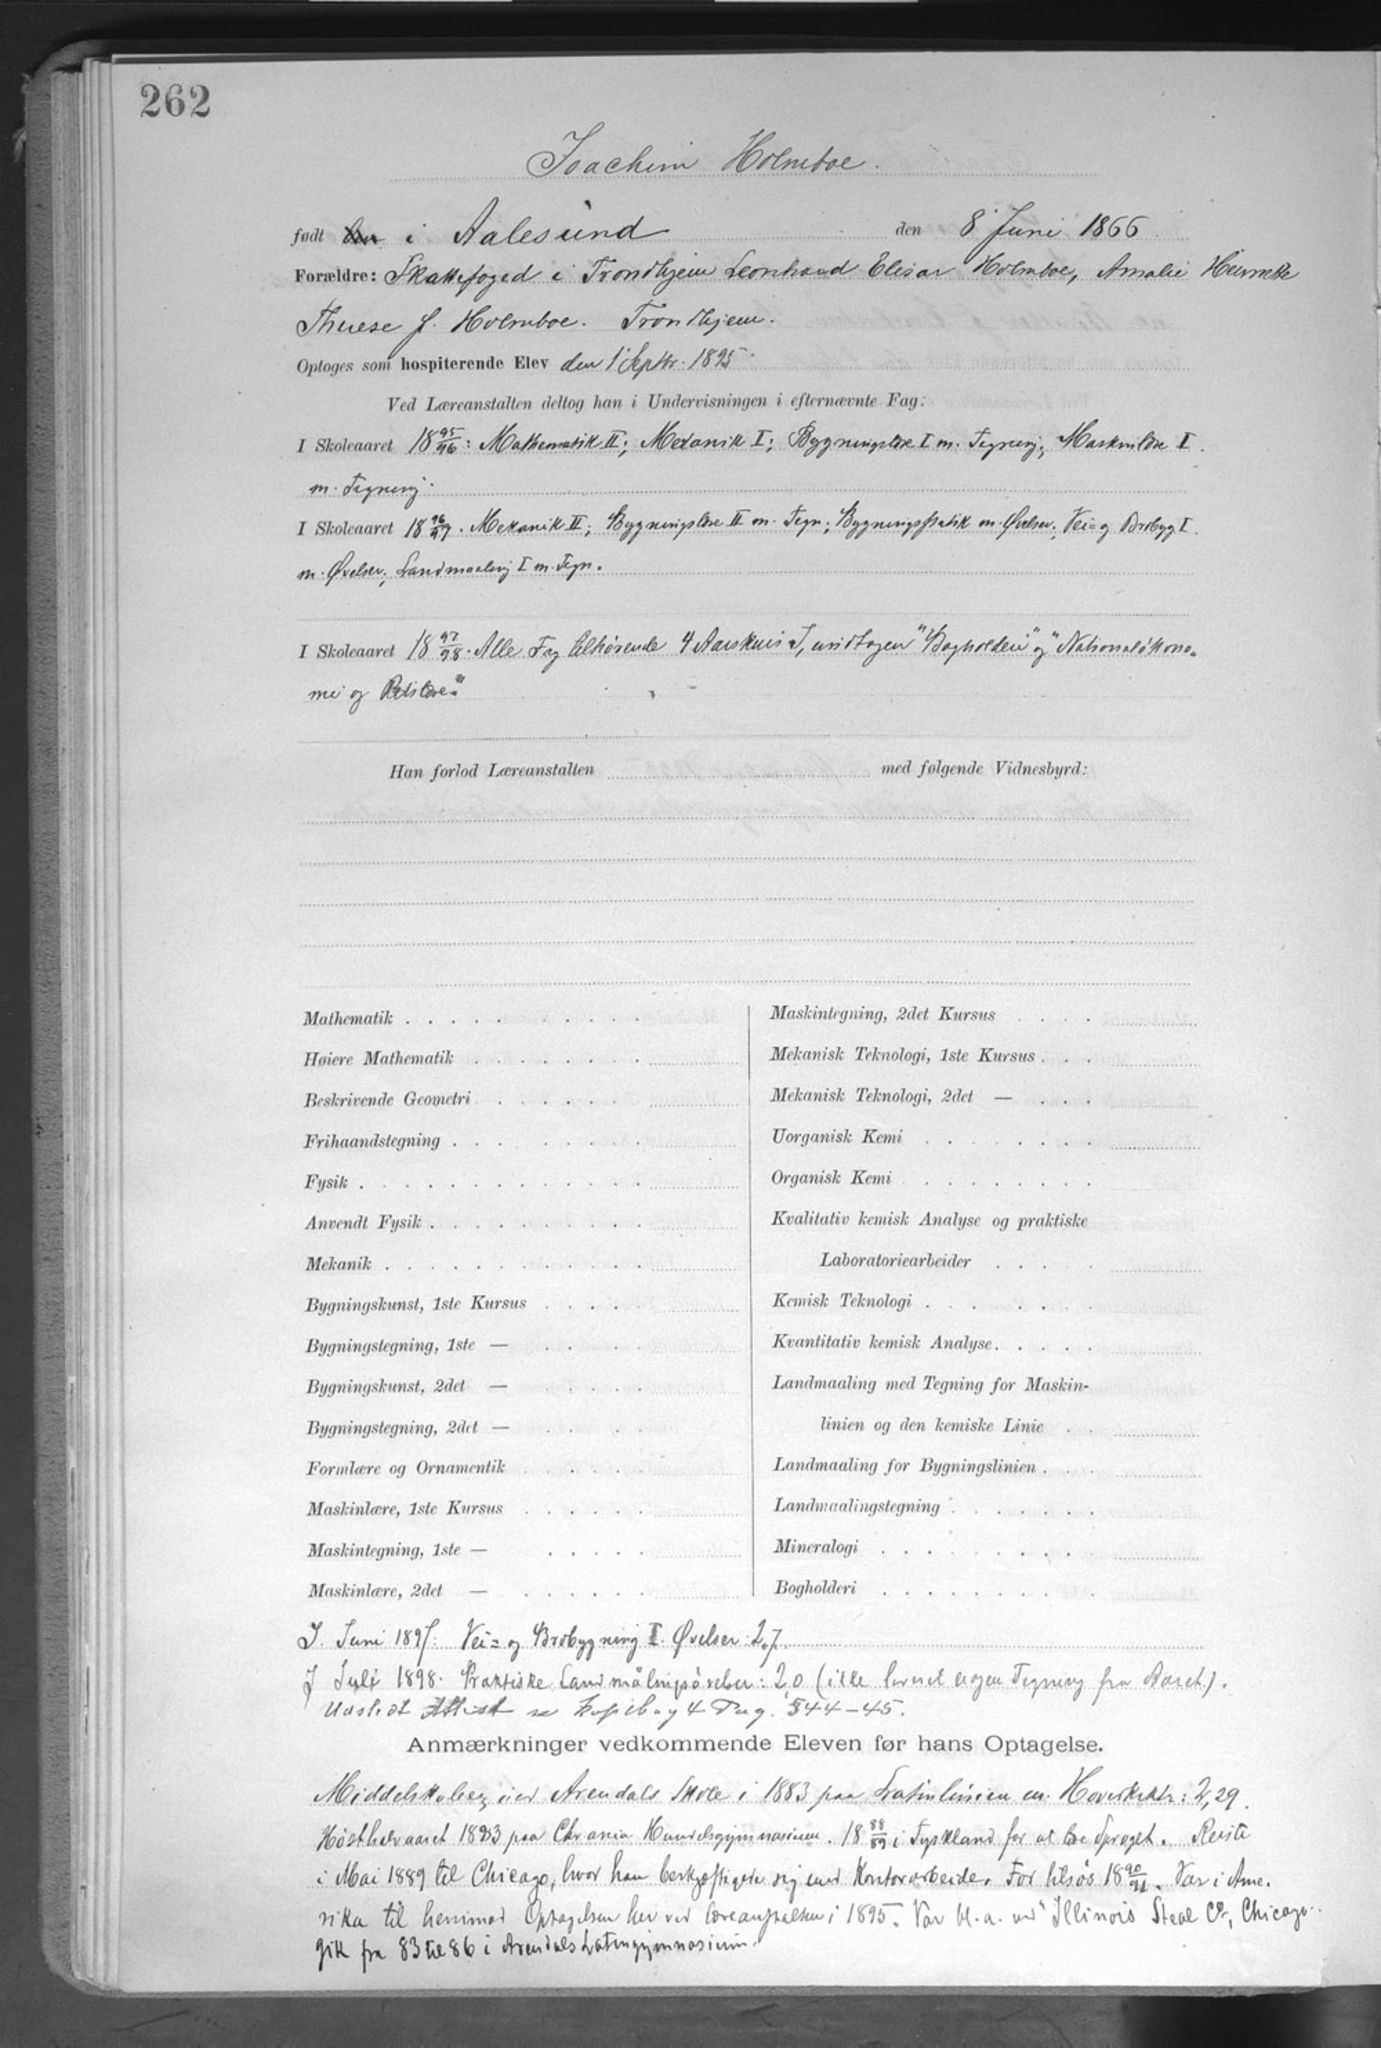 262
Joachim Holmboe.
født den i Aalesund den 8 Juni 1866
Forældre: Skattefoged i Trondhjem Leonhard Elisar Holmboe, Amalie Henriette
Therese f. Holmboe. Trondhjem.
Optoges som hospiterende Elev den 1 Septbr. 1895.
Ved Læreanstalten deltog han i Undervisningen i efternævnte Fag:
I Skoleaaret 18 95/96: Mathematik II; Mekanik I; Bygningslære I m. Tegning; Maskinlære I
m. Tegning.
I Skoleaaret 18 96/97. Mekanik II; Bygningslære II m. Tegn; Bygningsstatik m. Øvelser; Vei- og Brobyg I.
m. Øvelser; Landmaaling I m. Tegn.
I Skoleaaret 18 97/98. Alle Fag tilhørende 4 Aarskursus, undtagen "Bogholderi" og "Nationaløkono-
mi og Retslære"
Han forlod Læreanstalten med følgende Vidnesbyrd:
Mathematik
Høiere Mathematik
Beskrivende Geometri
Frihaandstegning
Fysik
Anvendt Fysik
Mekanik
Bygningskunst, 1ste Kursus
Bygningstegning, 1ste —
Bygningskunst, 2det —
Bygningstegning, 2det —
Formlære og Ornamentik
Maskinlære, 1ste Kursus
Maskintegning, 1ste —
Maskinlære, 2det —
Maskintegning, 2det Kursus
Mekanisk Teknologi, 1ste Kursus
Mekanisk Teknologi, 2det —
Uorganisk Kemi
Organisk Kemi
Kvalitativ kemisk Analyse og praktiske
Laboratoriearbeider
Kemisk Teknologi
Kvantitativ kemisk Analyse
Landmaaling med Tegning for Maskin-
linien og den kemiske Linie
Landmaaling for Bygningslinien
Landmaalingstegning
Mineralogi
Bogholderi
I Juni 1897: Vei- og Brobygning I. Øvelser: 2,7.
I Juli 1898. Praktiske Landmålingsøvelser: 2,0 (ikke leveret nogen Tegning fra Aaret).
Udstedt Attest se Kopibog 4 Pag. 544-45.
Anmærkninger vedkommende Eleven før hans Optagelse.
Middelskolex ved Arendals Skole i 1883 paa Latinlinien m. Hovedkakt: 2,29.
Høsthalvaaret 1883 paa Chrania Handelsgymnasium. 18 88/89 i Tyskland for at lære Sproget. Reiste
i Mai 1889 til Chicago, hvor han beskjæftigede sig med Kontorarbeide. For tilsøs 18 90/91. Var i Ame-
rika til henimod Optagelsen her ved Læreanstalten i 1895. Var bl. a. ved "Illinois Steal Co, Chicago.
gik fra 83 til 86 i Arendals Latingymnasium.